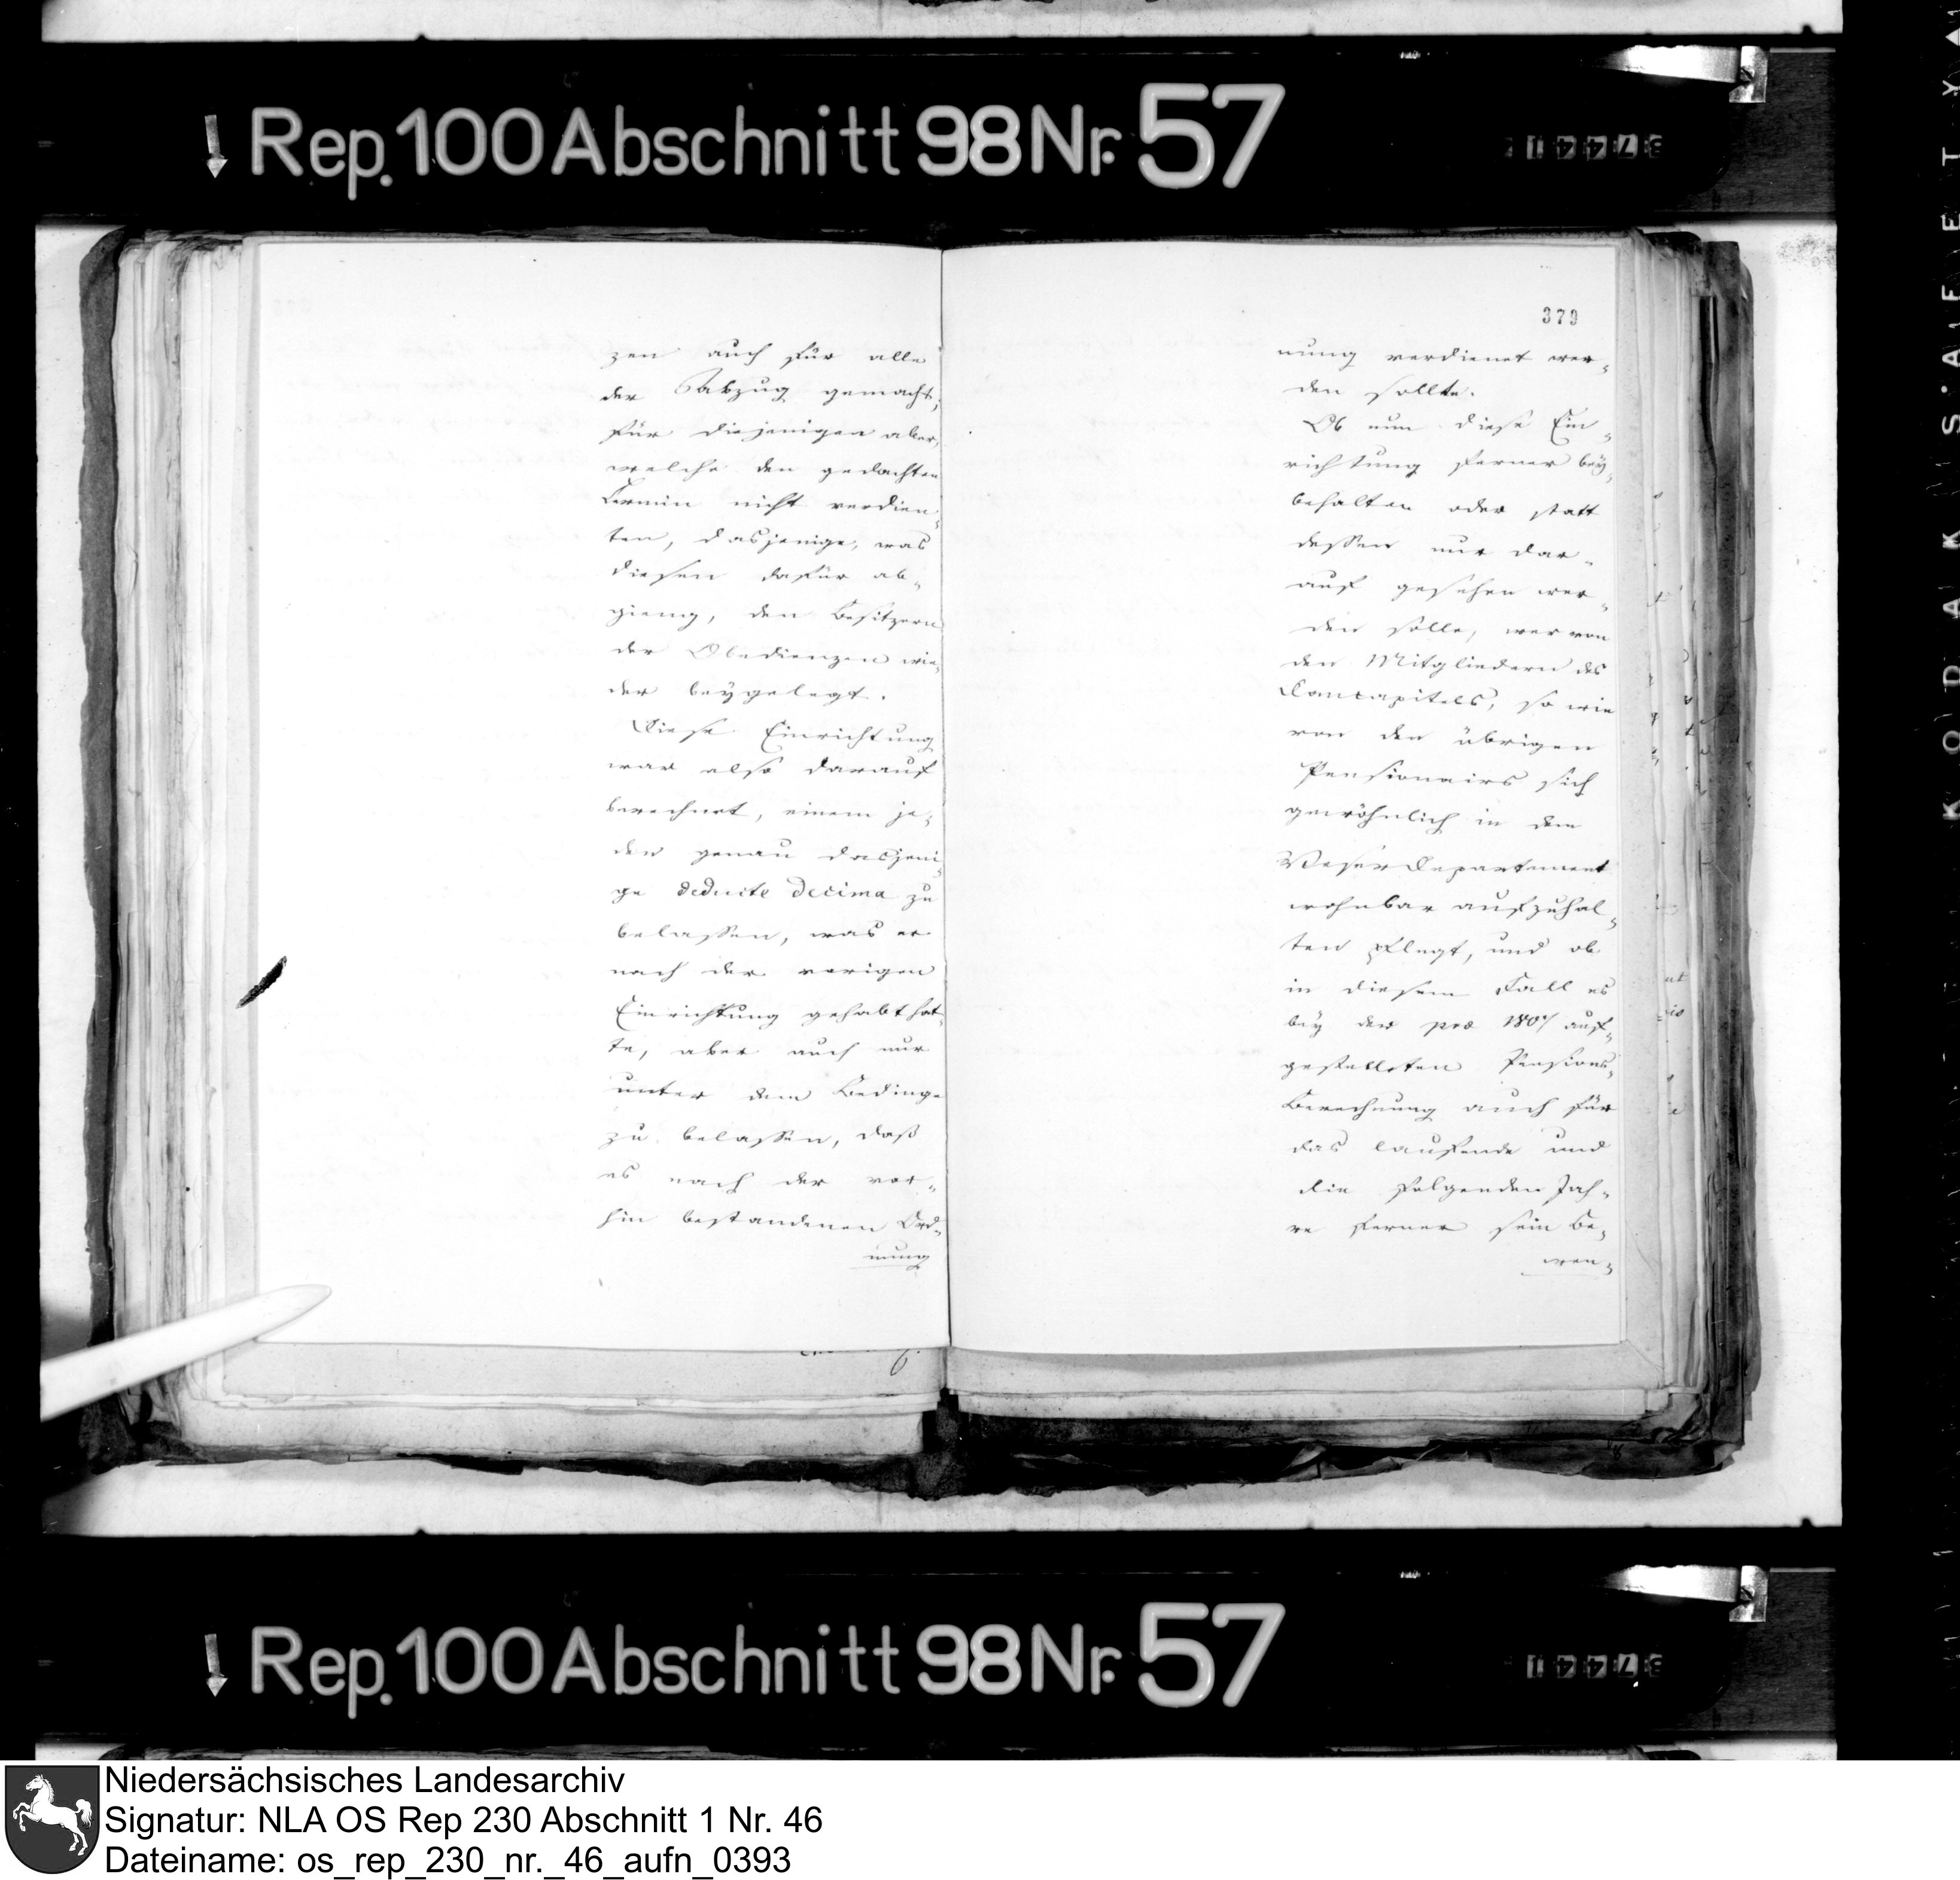 Rep. 100 Abschnitt 98 Nr. 57
zen auch für alle
der Abzug gemacht;
für diejenigen aber,
welche den gedachten
Termin nicht verdien-
ten, dasjenige, was
diesen dafür ab-
gieng, den Besitzern
der Obedienzen wie-
der beygelegt.
Diese Einrichtung
war also darauf
berechnet, einem je-
den genau dasjeni-
ge deducte decima zu
belassen, was er
nach der vorigen
Einrichtung gehabt hat-
te, aber auch nur
unter dem Bedinge
zu belassen, daß
es nach der vor-
hin bestandenen Ord-
nung
379
nung verdienet wer-
den sollte.
Ob nun diese Ein-
richtung ferner bey-
behalten oder statt
dessen nur dar-
auf gesehen wer-
den solle, wer von
den Mitgliedern des
Domcapitels, so wie
von den übrigen
Pensionairs sich
gewöhnlich in dem
Weser Departement
wohnbar aufzuhal-
ten pflegt, und ob
in diesem Fall es
bey der pro 1807 auf-
gestellten Pensions-
Berechnung auch für
das laufende und
die folgenden Jah-
re ferner sein Be-
wen-
Rep. 100 Abschnitt 98 Nr. 57
Niedersächsisches Landesarchiv
Signatur: NLA OS Rep 230 Abschnitt 1 Nr. 46
Dateiname: os_rep_230_nr._46_aufn_0393